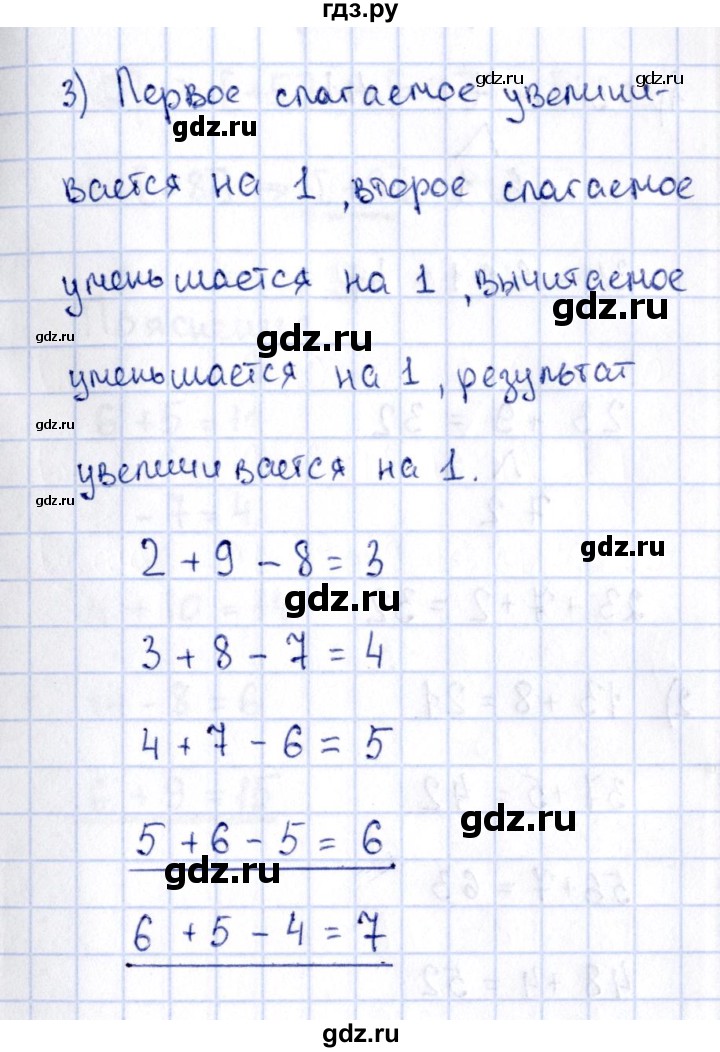 гдз.ру
3) Первое слагаемое увеличи-
gdz.ru
gdz.ru
gdz.ru
вается на 1, второе слагаемое
уменьшается на 1, вычитаемое
gdz.ru
gdz.ru
gdz.ru
уменьшается на 1, результат
gdz.ru
увеличивается на 1.
gdz.ru
2 + 9 - 8 = 3
gdz.ru
gdz.ru
3 + 8 - 7 = 4
4 + 7 - 6 = 5
gdz.ru
5 + 6 - 5 = 6
gdz.ru
6 + 5 - 4 = 7
gdz.ru